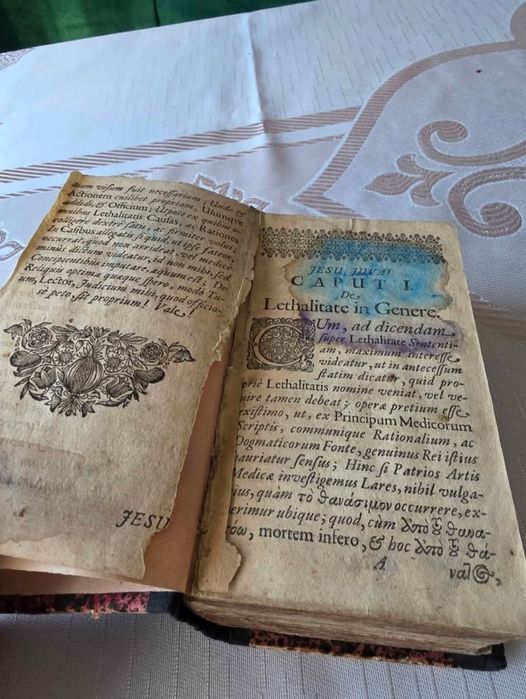 dum visum fuit necessarium; Unde &
Actionem cuilibet propriam, Ultimum
addidi, & Officium; Utpote ex quibus
omnibus Lethalitatis Causas, ac Rationes
In Casibus
occurrat, quod non
minùs dictum videatur, id non mihi, sed
Concipientibus imputare æquum est. De
Reliquis optima quæque spero, modò Tu-
um, Lector, Judicium mihi, quod officio-
sè peto, sis proprium! Vale!
JESU
JESU JUVA!
CAPUT I.
De
Lethalitate in Genere.
CUm, ad dicendam
super Lethalitate Sententi-
am, maximum interesse
videatur, ut in antecessum
statim dicatur, quid pro-
priè Lethalitatis nomine veniat, vel ve-
nire tamen debeat; operæ pretium esse
existimo, ut, ex Principum Medicorum
Scriptis, communique Rationalium, ac
Dogmaticorum Fonte, genuinus Rei istius
hauriatur sensus; Hinc si Patrios Artis
Medicæ investigemus Lares, nihil vulga-
tius, quàm τὸ θανάσιμον occurrere, ex-
perimur ubique; quod, cùm ἀπὸ τοῦ θανα-
τόω, mortem infero, & hoc ἀπὸ τοῦ θά-
A
νατος,